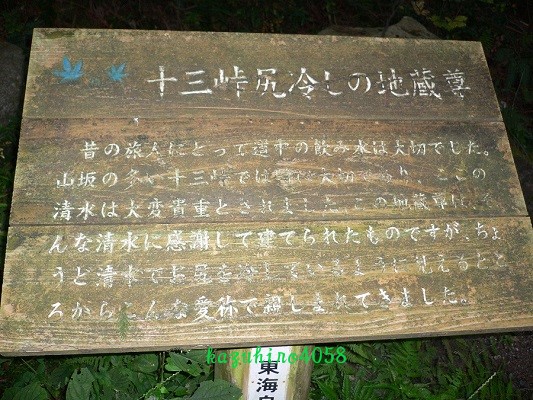 十三峠尻冷しの地蔵尊
昔の旅人にとって道中の飲み水は大切でした。
山坂の多い十三峠では 大切であり、ここの
清水は大変貴重とされました。この地蔵尊は、そ
んな清水に感謝して建てられたものですが、ちょ
うど清水でお尻を冷しているように見えるとこ
ろからこんな愛称で親しまれてきました。
kazuhiro4058
東海自